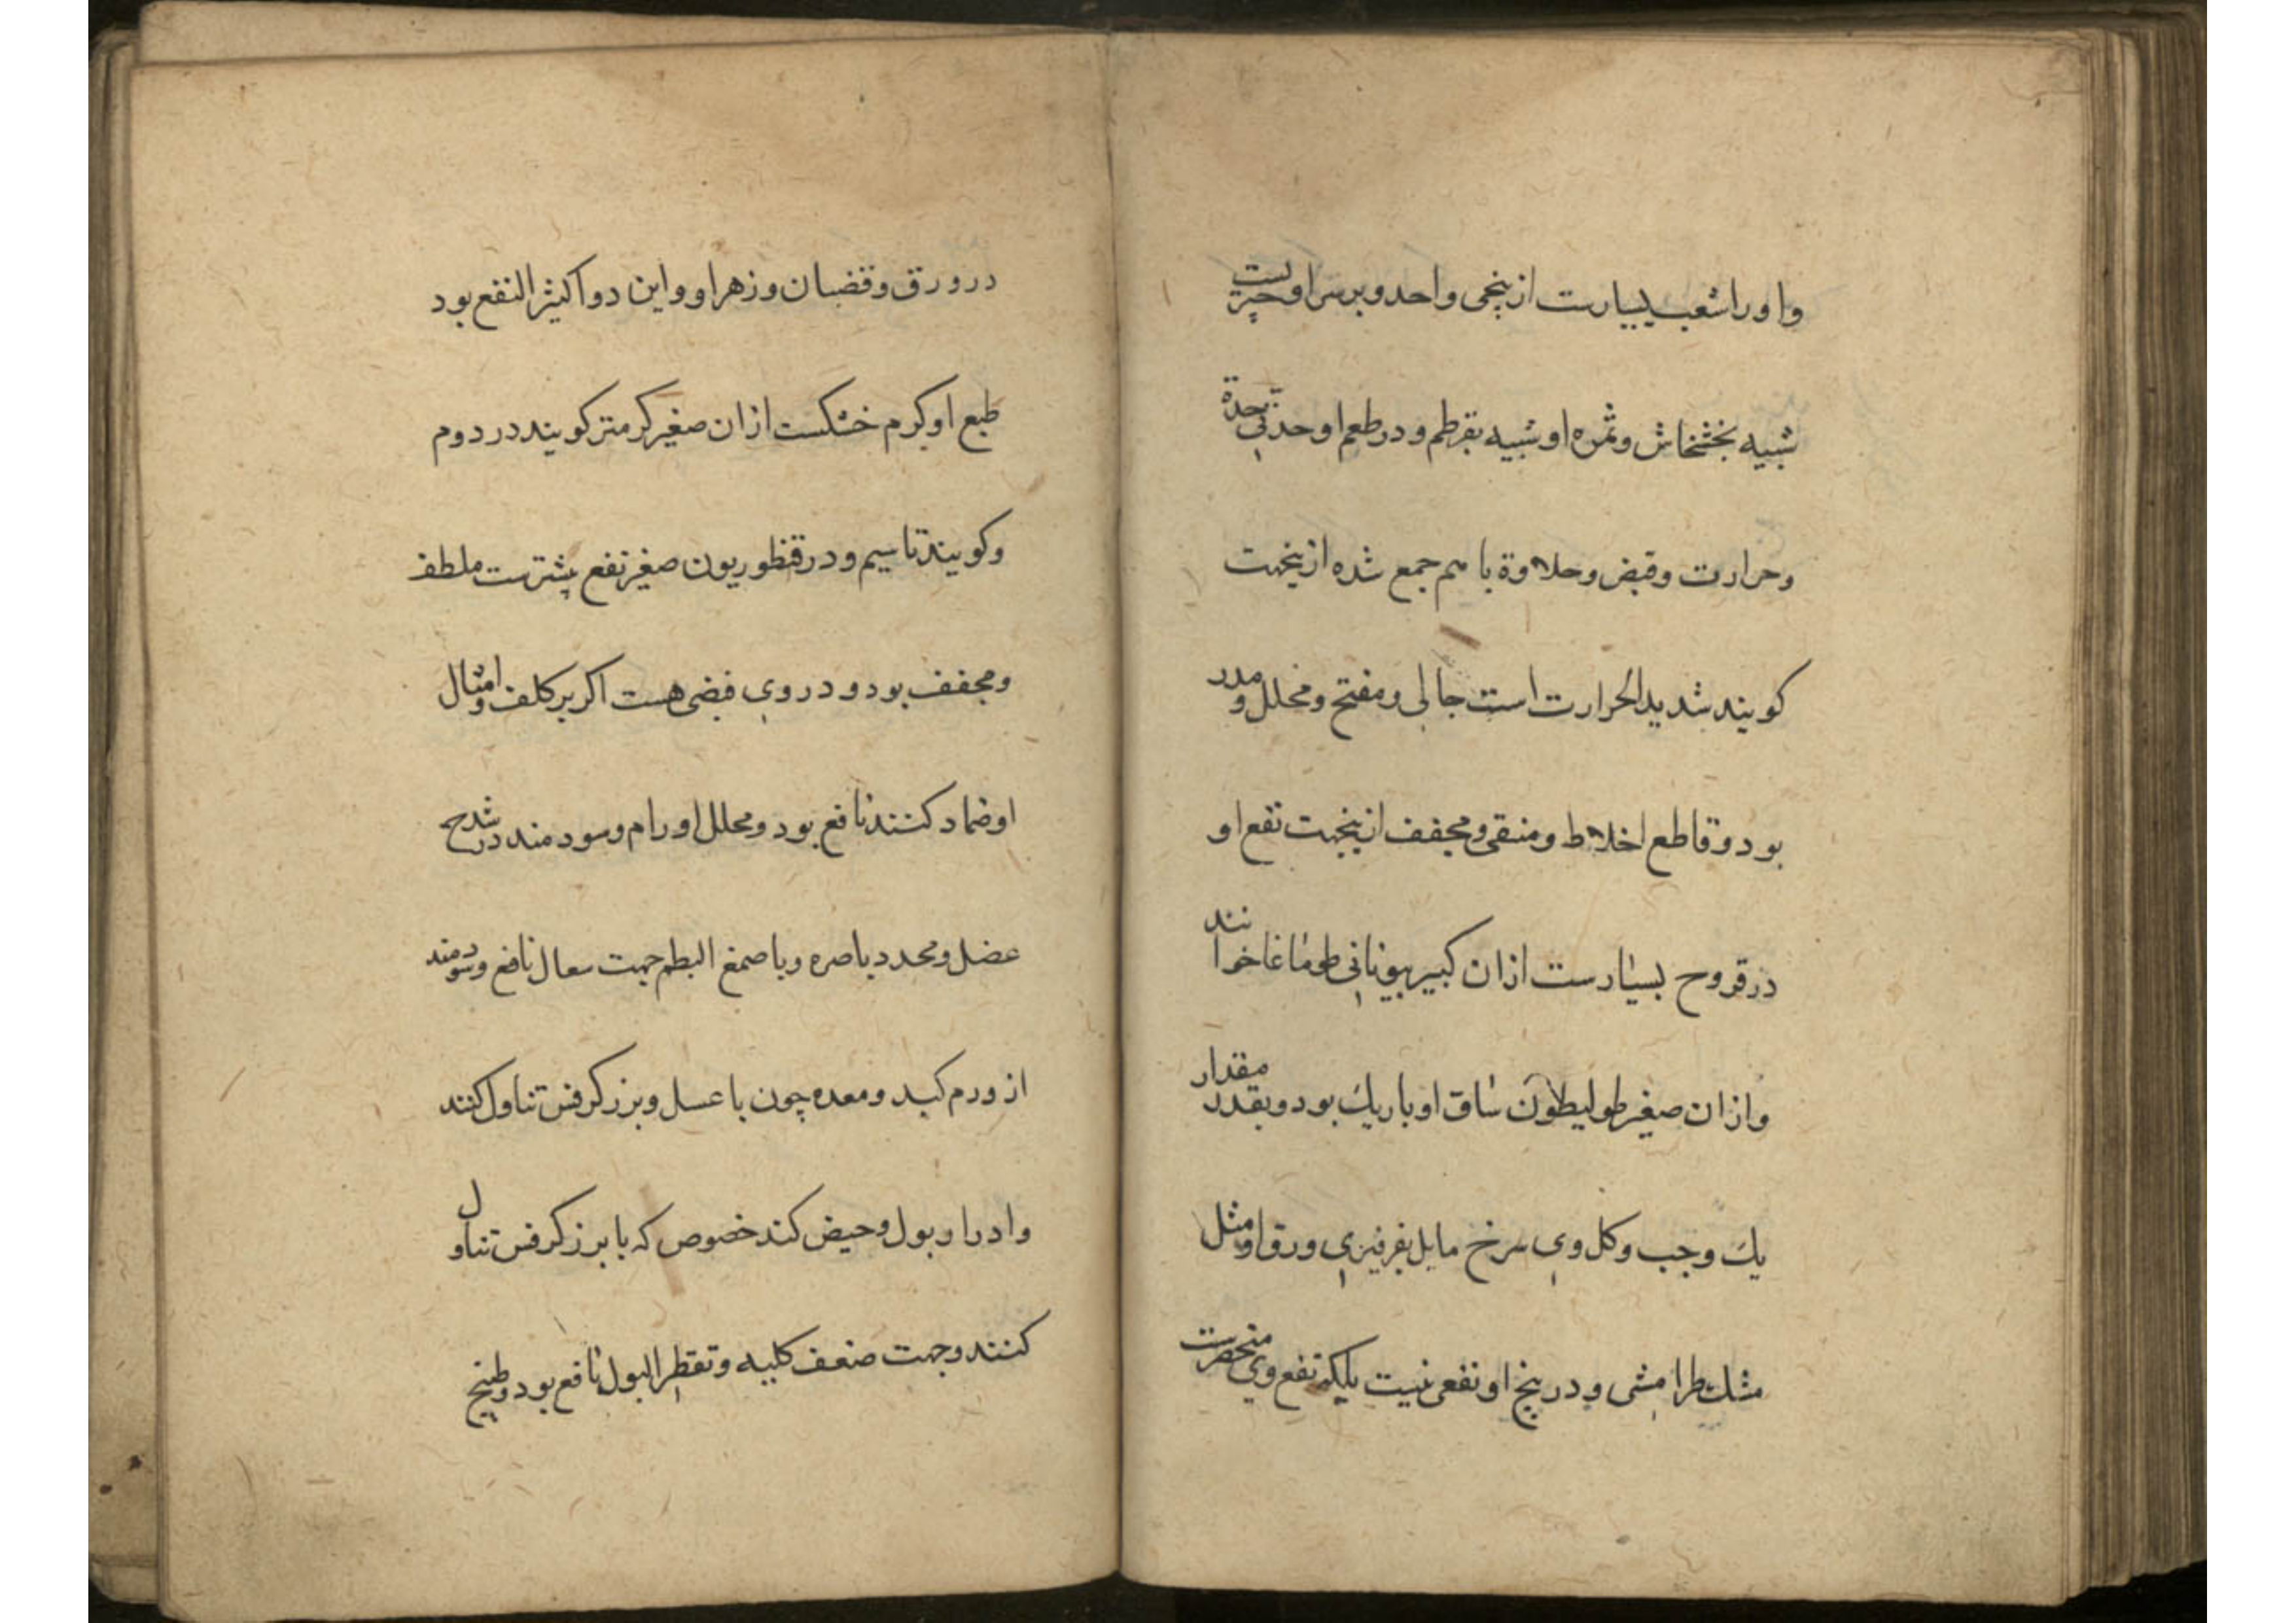 واورا شعب بسیارست از بیخی واحد و بر سر او چیزیست
شبیه بخشخاش و ثمره او شبیه بقرطم و در طعم او حدتی بحدة
وحرارت وقبض وحلاوة باهم جمع شده ازینجهت
کویند شدید الحرارت است جالی ومفتح ومحلل ومدر
بود وقاطع اخلاط ومنقی ومجفف ازینجهت نفع او
در قروح بسیارست از آن کبیر بیونانی طوماغا خوانند
واز آن صغیر طولیطلاون ساق او باریک بود و بقدر مقدار
یک وجب وکل وی سرخ مایل بفرفیری ورق او مثل
مشک طرامشی و در بیخ او نفعی نیست بلکه نفع وی منحصرست
در ورق وقضبان وزهر او واین دوا کثیر النفع بود
طبع او کرم خشکست از آن صغیر کرمتر کویند در دوم
وکویند تا سیم و در قنطوریون صغیر نفع بیشترست ملطف
ومجفف بود و در وی قبضی هست اکر بر کلف وامثال
او ضماد کنند نافع بود ومحلل اورام وسودمند در شدح
عضل ومحدد باصره وبا صمغ البطم جهت سعال نافع وسودمند
از ورم کبد ومعده چون با عسل وبزر کرفس تناول کنند
وادرار بول وحیض کند خصوص که با بزر کرفس تناول
کنند وجهت ضعف کلیه وتقطیر البول نافع بود وطبیخ